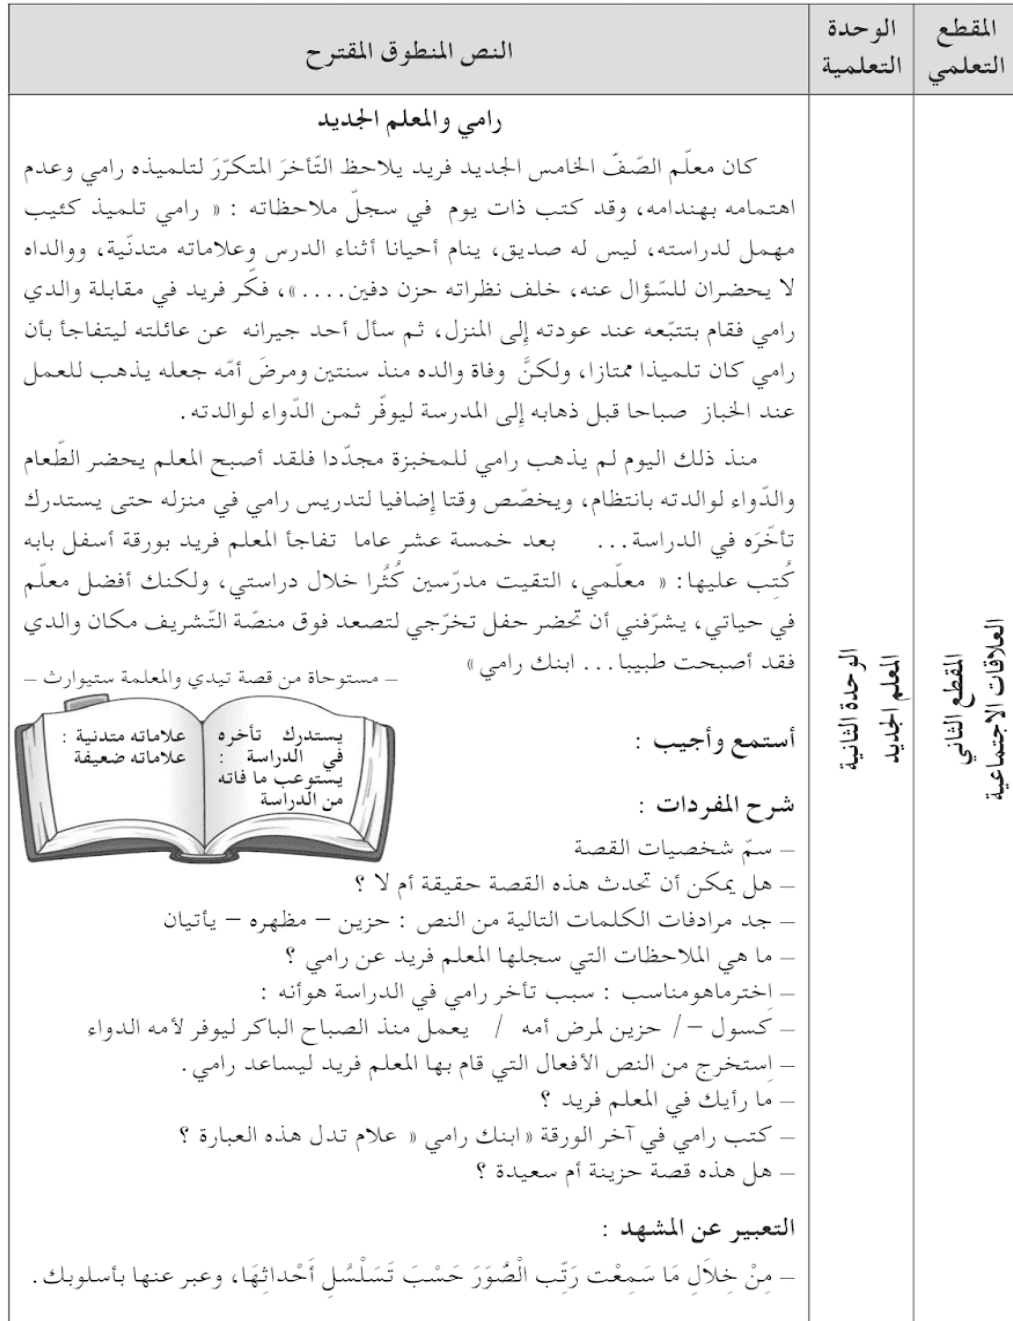 المقطع التعلمي
الوحدة التعلمية
النص المنطوق المقترح
المقطع الثاني
العلاقات الاجتماعية
الوحدة الثانية
المعلم الجديد
رامي والمعلم الجديد
كان معلّم الصّفّ الخامس الجديد فريد يلاحظ التّأخرَ المتكرّرَ لتلميذه رامي وعدم
اهتمامه بهندامه، وقد كتب ذات يوم في سجلّ ملاحظاته : « رامي تلميذ كئيب
مهمل لدراسته، ليس له صديق، ينام أحيانا أثناء الدرس وعلاماته متدنّية، ووالداه
لا يحضران للسّؤال عنه، خلف نظراته حزن دفين....»، فكّر فريد في مقابلة والدي
رامي فقام بتتبّعه عند عودته إِلى المنزل، ثم سأل أحد جيرانه عن عائلته ليتفاجأ بأن
رامي كان تلميذا ممتازا، ولكنَّ وفاة والده منذ سنتين ومرضَ أمّه جعله يذهب للعمل
عند الخباز صباحا قبل ذهابه إِلى المدرسة ليوفّر ثمن الدّواء لوالدته.
منذ ذلك اليوم لم يذهب رامي للمخبزة مجدّدا فلقد أصبح المعلم يحضر الطّعام
والدّواء لوالدته بانتظام، ويخصّص وقتا إِضافيا لتدريس رامي في منزله حتى يستدرك
تأخّرَه في الدراسة... بعد خمسة عشر عاما تفاجأ المعلم فريد بورقة أسفل بابه
كُتِب عليها: « معلّمي، التقيت مدرّسين كُثُرا خلال دراستي، ولكنك أفضل معلّم
في حياتي، يشرّفني أن تحضر حفل تخرّجي لتصعد فوق منصّة التّشريف مكان والدي
فقد أصبحت طبيبا... ابنك رامي»
– مستوحاة من قصة تيدي والمعلمة ستيوارث –
يستدرك تأخره
في الدراسة :
يستوعب ما فاته
من الدراسة
علاماته متدنية :
علاماته ضعيفة
أستمع وأجيب :
شرح المفردات :
– سمّ شخصيات القصة
– هل يمكن أن تحدث هذه القصة حقيقة أم لا ؟
– جد مرادفات الكلمات التالية من النص : حزين – مظهره – يأتيان
– ما هي الملاحظات التي سجلها المعلم فريد عن رامي ؟
– اِخترماهومناسب : سبب تأخر رامي في الدراسة هوأنه :
– كسول –/ حزين لمرض أمه / يعمل منذ الصباح الباكر ليوفر لأمه الدواء
– اِستخرج من النص الأفعال التي قام بها المعلم فريد ليساعد رامي.
– ما رأيك في المعلم فريد ؟
– كتب رامي في آخر الورقة «ابنك رامي « علام تدل هذه العبارة ؟
– هل هذه قصة حزينة أم سعيدة ؟
التعبير عن المشهد :
– مِنْ خِلَالِ مَا سَمِعْت رَتِّب الْصُّوَرَ حَسْبَ تَسَلْسُلِ أَحْداثِهَا، وعبر عنها بأسلوبك.